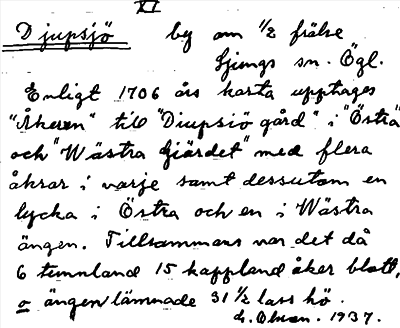 XI
Djupsjö by om 1/2 frälse
Ljungs sn. Ögl.
Enligt 1706 års karta upptages
"Åkeren" til "Diupsiö gård" i "Östra"
och "Wästra Giärdet" med flera
åkrar i varje samt dessutom en
lycka i Östra och en i Wästra
ängen. Tillsammans var det då
6 tunnland 15 kappland åker blott,
o ängen lämnade 31 1/2 lass hö.
G. Olson. 1937.